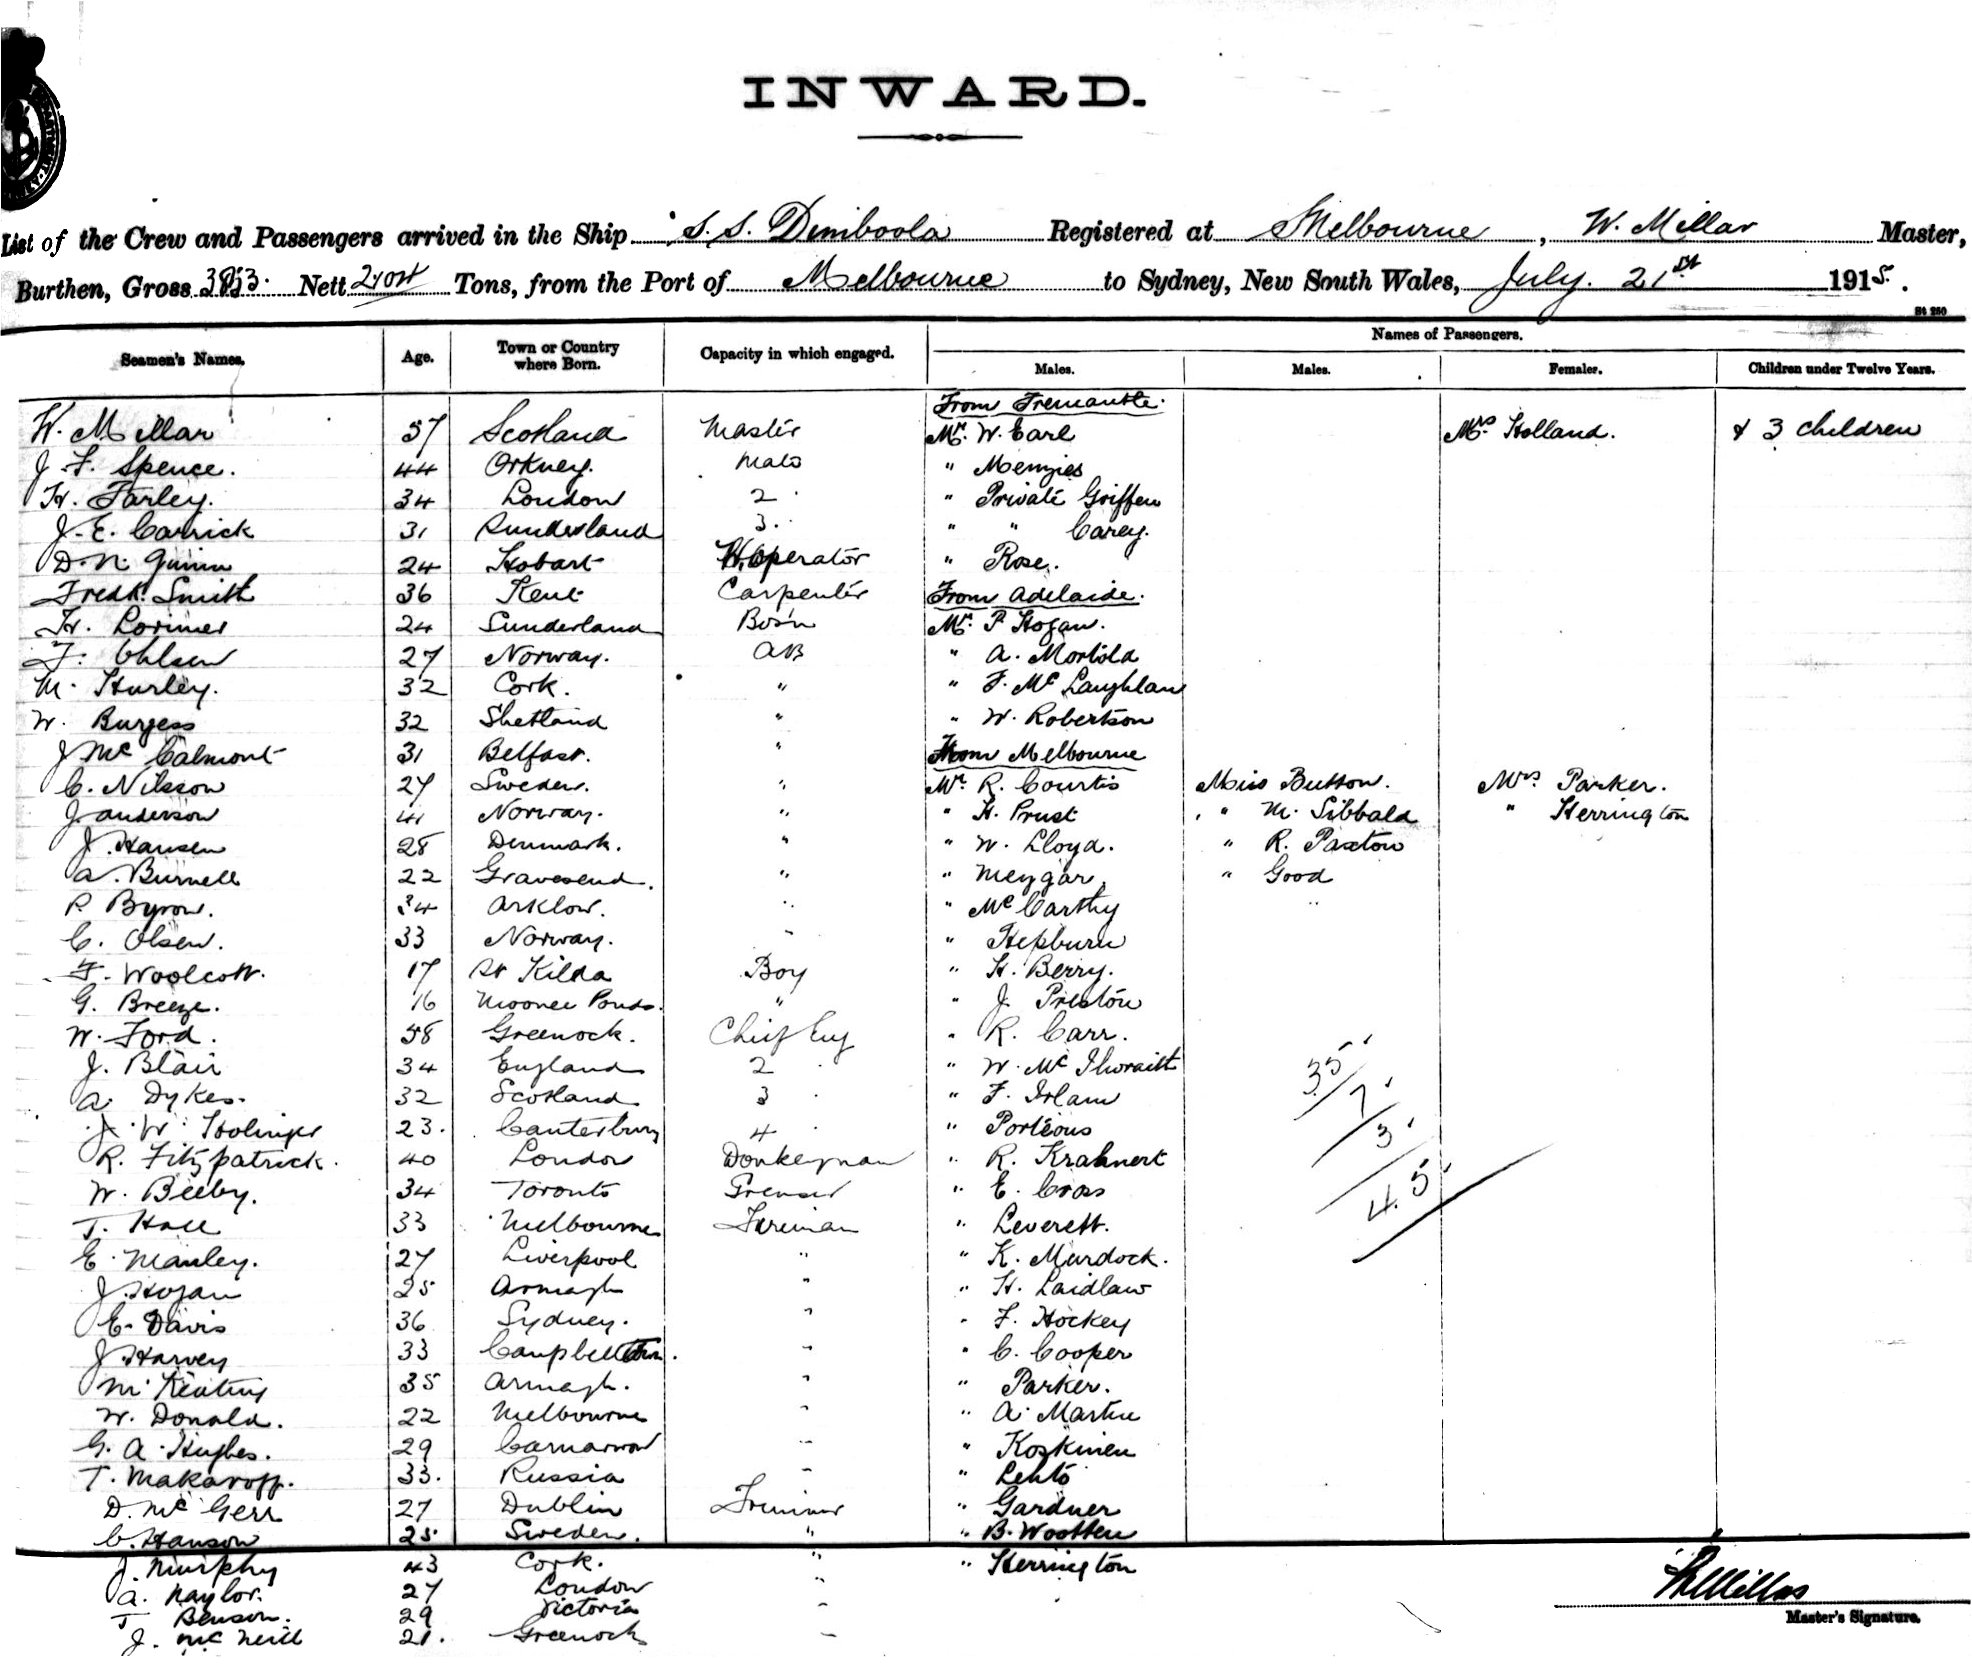 INWARD.
List of the Crew and Passengers arrived in the Ship S.S. Dimboola Registered at Melbourne, W. Millar Master,
Burthen, Gross 3853. Nett Tons, from the Port of Melbourne to Sydney, New South Wales, July. 21st 1915.
St 250
Names of Passengers.
Seamen's Names. Age. Town or Country where Born. Capacity in which engaged. Males. Males. Females. Children under Twelve Years.
From Fremantle.
W. Millar 57 Scotland Master Mr. W. Earl Mrs Holland. & 3 children
J. F. Spence. 44 Orkney. Mate " Menzies
H. Farley. 34 London 2 " Private Griffen
J. E. Carrick 31 Sunderland 3. " " Carey.
D. N. Guinn 24 Hobart W. Operator " Rose.
Fredk. Smith 36 Kent Carpenter From Adelaide.
H. Lorimer 24 Sunderland Bosn Mr. P Hogan.
F. Ohlsen 27 Norway. AB " A. Morbold
M. Hurley. 32 Cork. " " F. Mc Laughlan
W. Burgess 32 Shetland " " W. Robertson
J Mc Calmont 31 Belfast. " From Melbourne
C. Nilsson 27 Sweden. " Mr. R. Courtis Miss Button. Mrs. Parker.
J Anderson 41 Norway. " " H. Prust " M. Sibbald " Herrington
J. Hansen 28 Denmark. " " W. Lloyd. " R. Paxton
A. Burnell 22 Gravesend. " " Meygar. " Good
P. Byrow. 34 Arklow. " " Mc Carthy
C. Olsen. 33 Norway. " " Hepburn
F. Woolcott. 17 St Kilda Boy " H. Berry.
G. Breeze. 16 Moonee Ponds. " " J. Preston
W. Ford. 58 Greenock. Chief Eng " R. Carr.
J. Blair 34 England 2 " W. Mc Ilwraith 35
A. Dykes. 32 Scotland 3 " F. Irlam 7
J. W. Holinger 23. Canterbury 4 " Porteous 3
R. Fitzpatrick. 40 London Donkeyman " R. Krahnert
W. Beeby. 34 Toronto Greaser " E. Cross 45
T. Hall 33 Melbourne Fireman " Leverett.
E. Manley. 27 Liverpool " " K. Murdock.
J. Hogan 25 Armagh " " H. Laidlaw
E. Davis 36 Sydney. " " F. Hockey
J Harvey 33 Campbelltown. " " C. Cooper
M. Keating 35 Armagh. " " Parker.
W. Donald. 22 Melbourne " " A. Martin
G. A. Hughes. 29 Carnarvon " " Koskinen
T. Makaroff. 33. Russia " " Lehto
D. Mc Gerr 27 Dublin Trimmer " Gardner
C. Hanson 25 Sweden. " " B. Wootten
J. Murphy 43 Cork. " " Herrington
A. Naylor. 27 London "
T Benson. 29 Victoria "
J. Mc Neill 21. Greenock "
W Millar
Master's Signature.